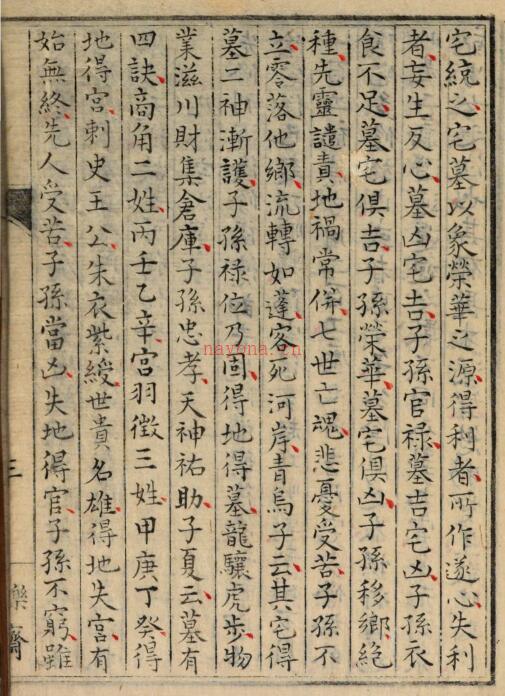 宅統之宅墓以象榮華之源得利者所作遂心失利
者妄生反心墓凶宅吉子孫官禄墓吉宅凶子孫衣
食不足墓宅俱吉子孫榮華墓宅俱凶子孫移鄉絶
種先靈譴責地禍常併七世亡魂悲憂受苦子孫不
立零落他鄉流轉如蓬客死河岸青烏子云其宅得
墓二神漸護子孫禄位乃固得地得墓龍驤虎步物
業滋川財集倉庫子孫忠孝天神祐助子夏云墓有
四訣商角二姓丙壬乙辛宮羽徵三姓甲庚丁癸得
地得宮刺史王公朱衣紫綬世貴名雄得地失宮有
始無終先人受苦子孫當凶失地得官子孫不窮雖
三
樂齋
nayona.cn